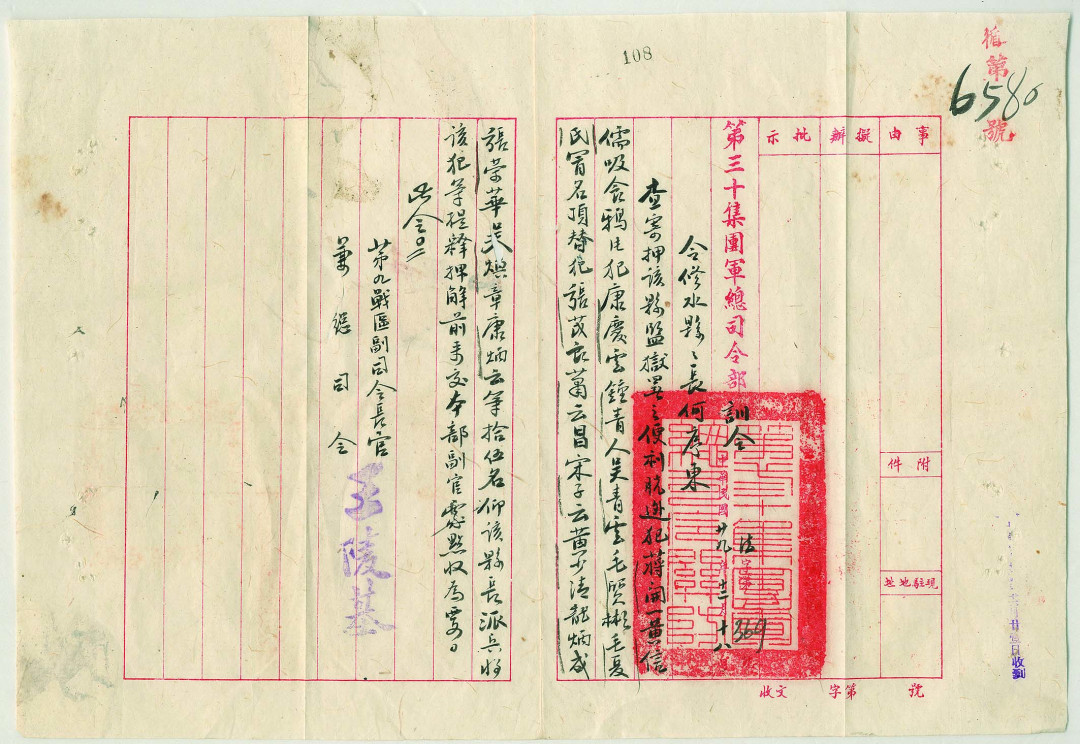 循第號
6580
108
事由
擬辦
批示
附件
現駐地址
收文 字第 號
第三十集團軍總司令部訓令
法字第369
中華民國廿九年十二月十八日
令修水縣縣長何序東
查寄押該縣監獄署之便利脫逃犯蔣開一黃信
儒吸食鴉片犯康慶雲鐘青人吳青雲毛賢彬毛夏
民冒名頂替犯張茂良蕭云昌宋子云黃少清龍炳成
張榮華吳煥章康炳云等拾伍名仰該縣長派兵將
該犯等提釋押解前來交本部副官處點收為要
此令
第九戰區副司令長官
兼總司令
王陵基
廿三日收到